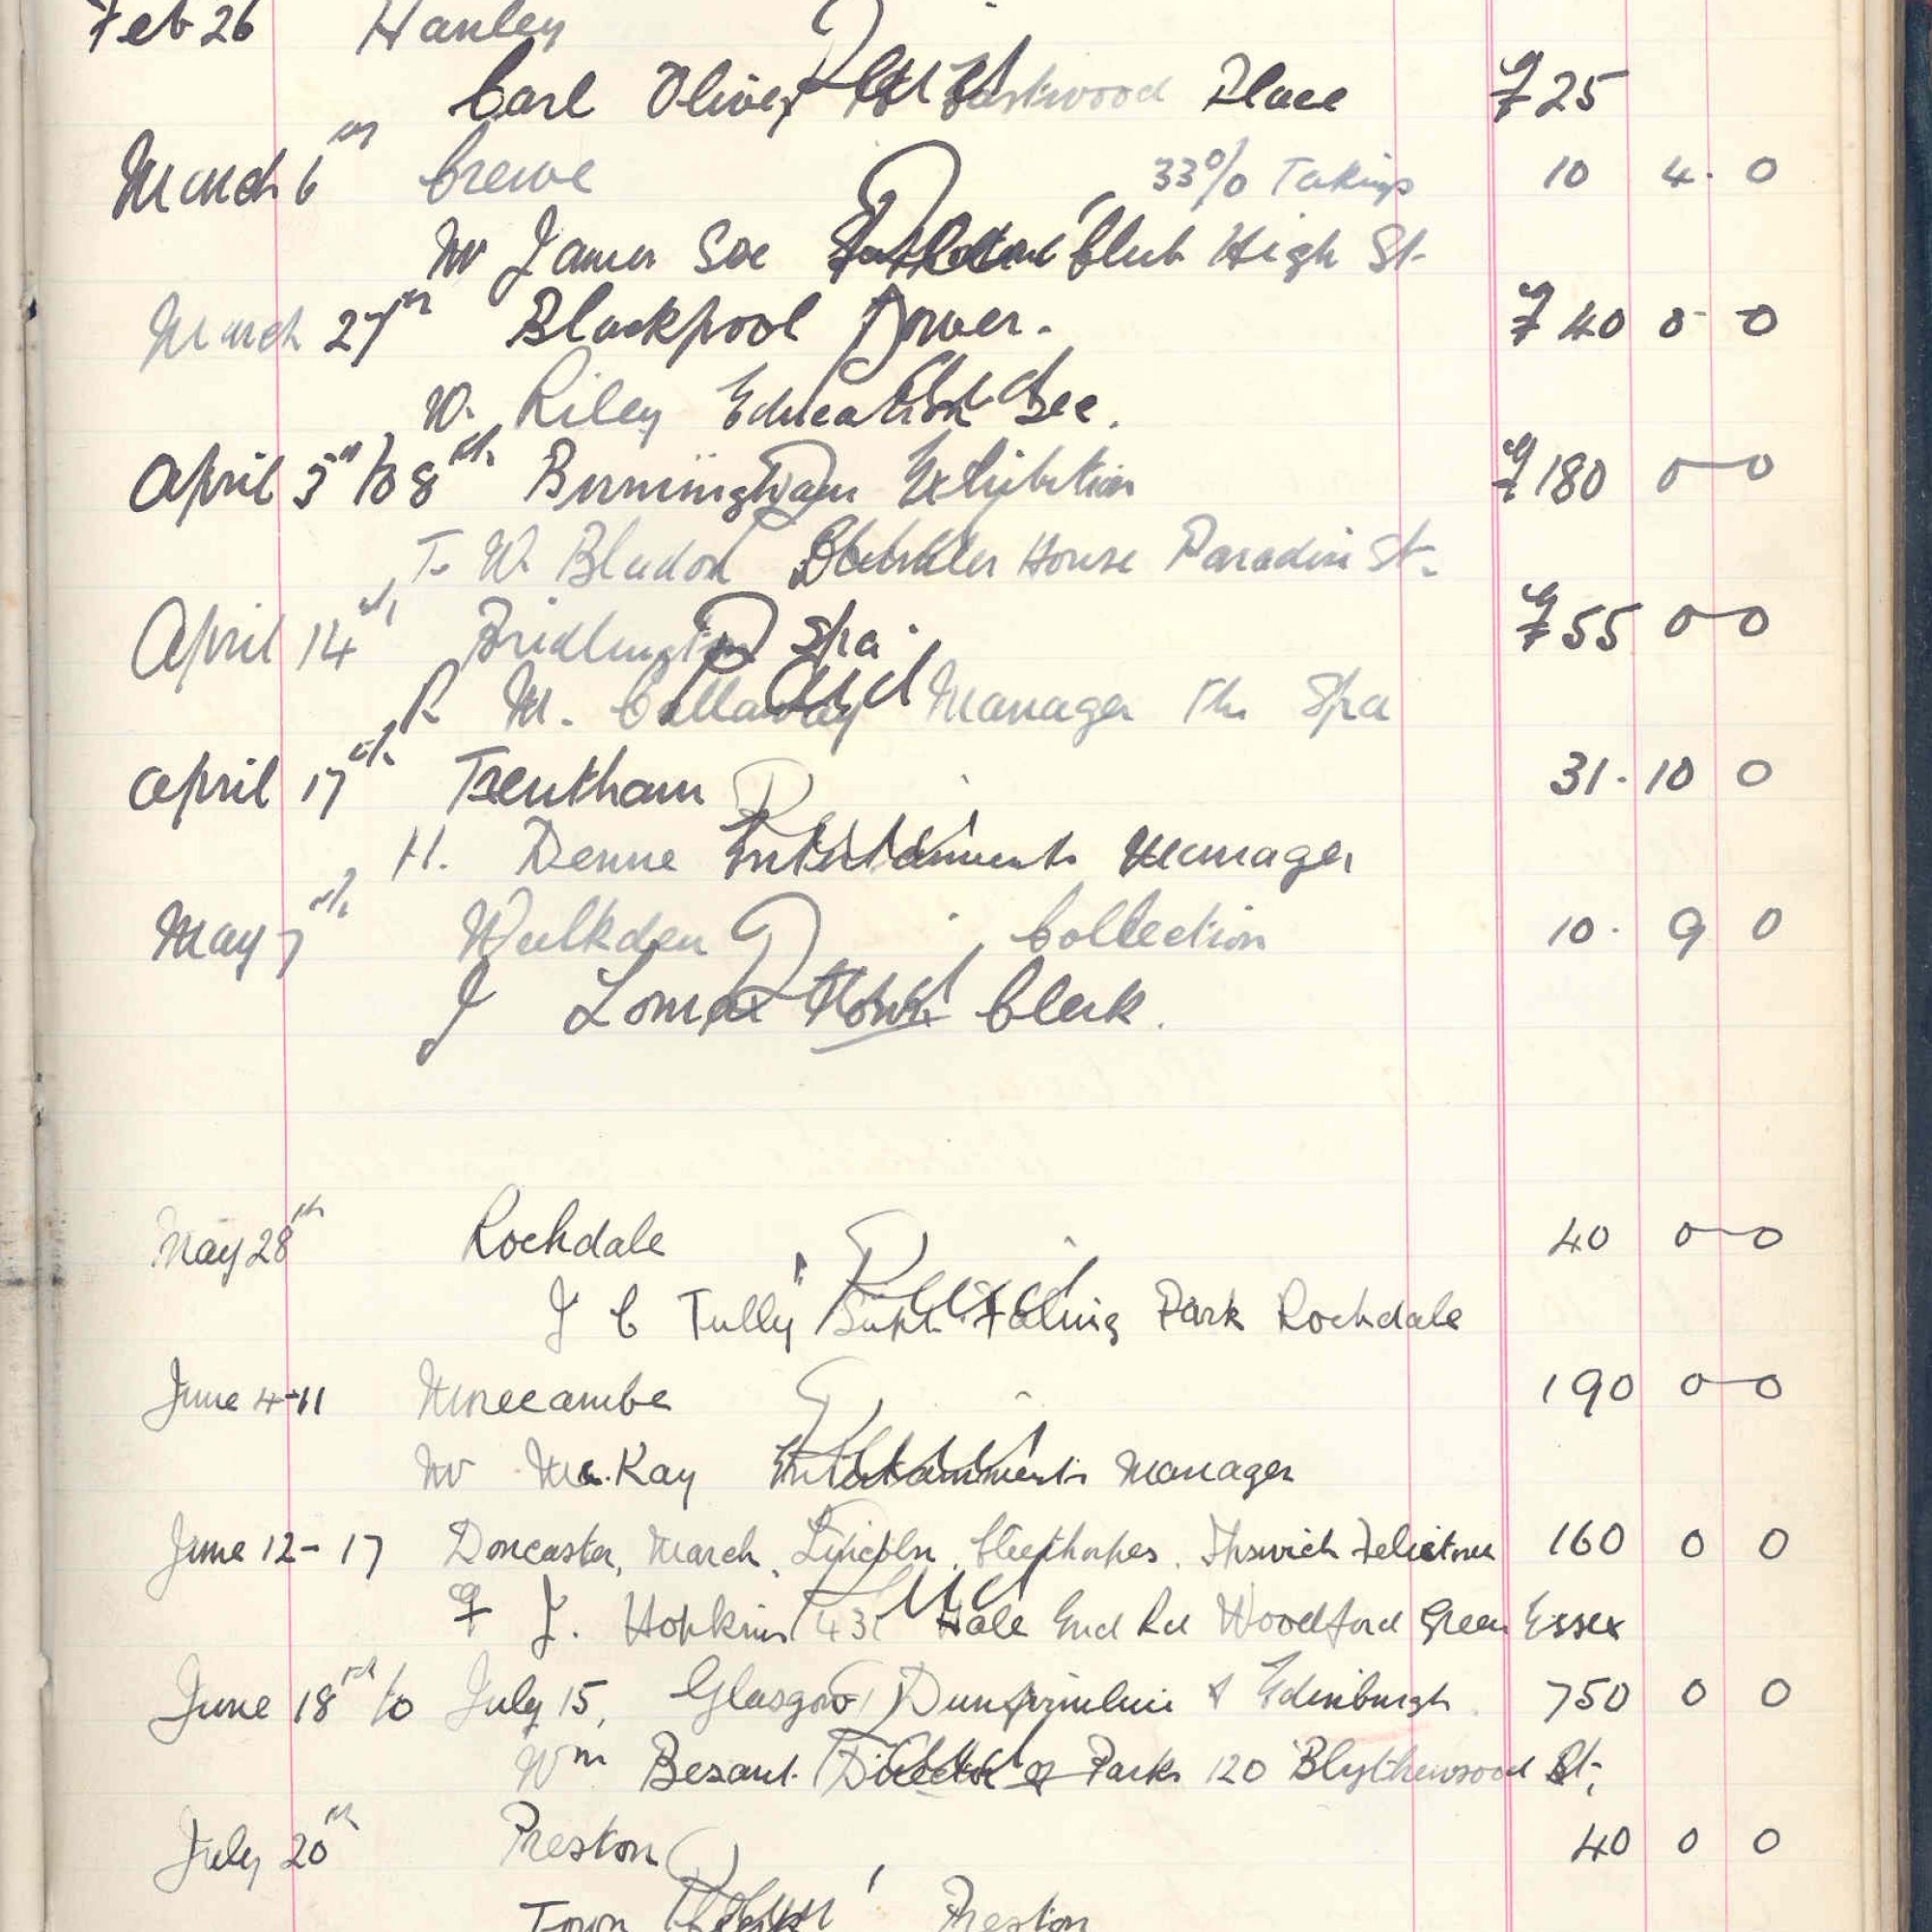 Feb 26 Hanley
Carl Oliver Eastwood Place £25
March 6th Crewe 33% Takings 10 4. 0
Mr James Club High St.
March 27th Blackpool Tower. £40 0 0
W. Riley Education Sec.
April 5th to 8th Birmingham Exhibition £180 0 0
T. W. Bladon House Paradise St.
April 14th Bridlington Spa. £55 0 0
Paid
R M. Callaway Manager The Spa
April 17th Trentham 31. 10 0
Paid
H. Denne Entertainments Manager
May 7th Walkden Collection 10. 9 0
Paid
J Lomax Town Clerk.
May 28th Rochdale 40 0 0
Paid
J C Tully Supt. Falinge Park Rochdale
June 4-11 Morecambe 190 0 0
Paid
Mr McKay Entertainments Manager
June 12-17 Doncaster, March, Lincoln, Cleethorpes, Ipswich Felixtowe 160 0 0
Paid
J. Hopkins 43 Hale End Rd Woodford Green Essex
June 18th to July 15, Glasgow, Dunfermline & Edinburgh. 750 0 0
Paid
Wm Besant. Director of Parks 120 Blythswood St,
July 20th Preston 40 0 0
Town Clerk Preston